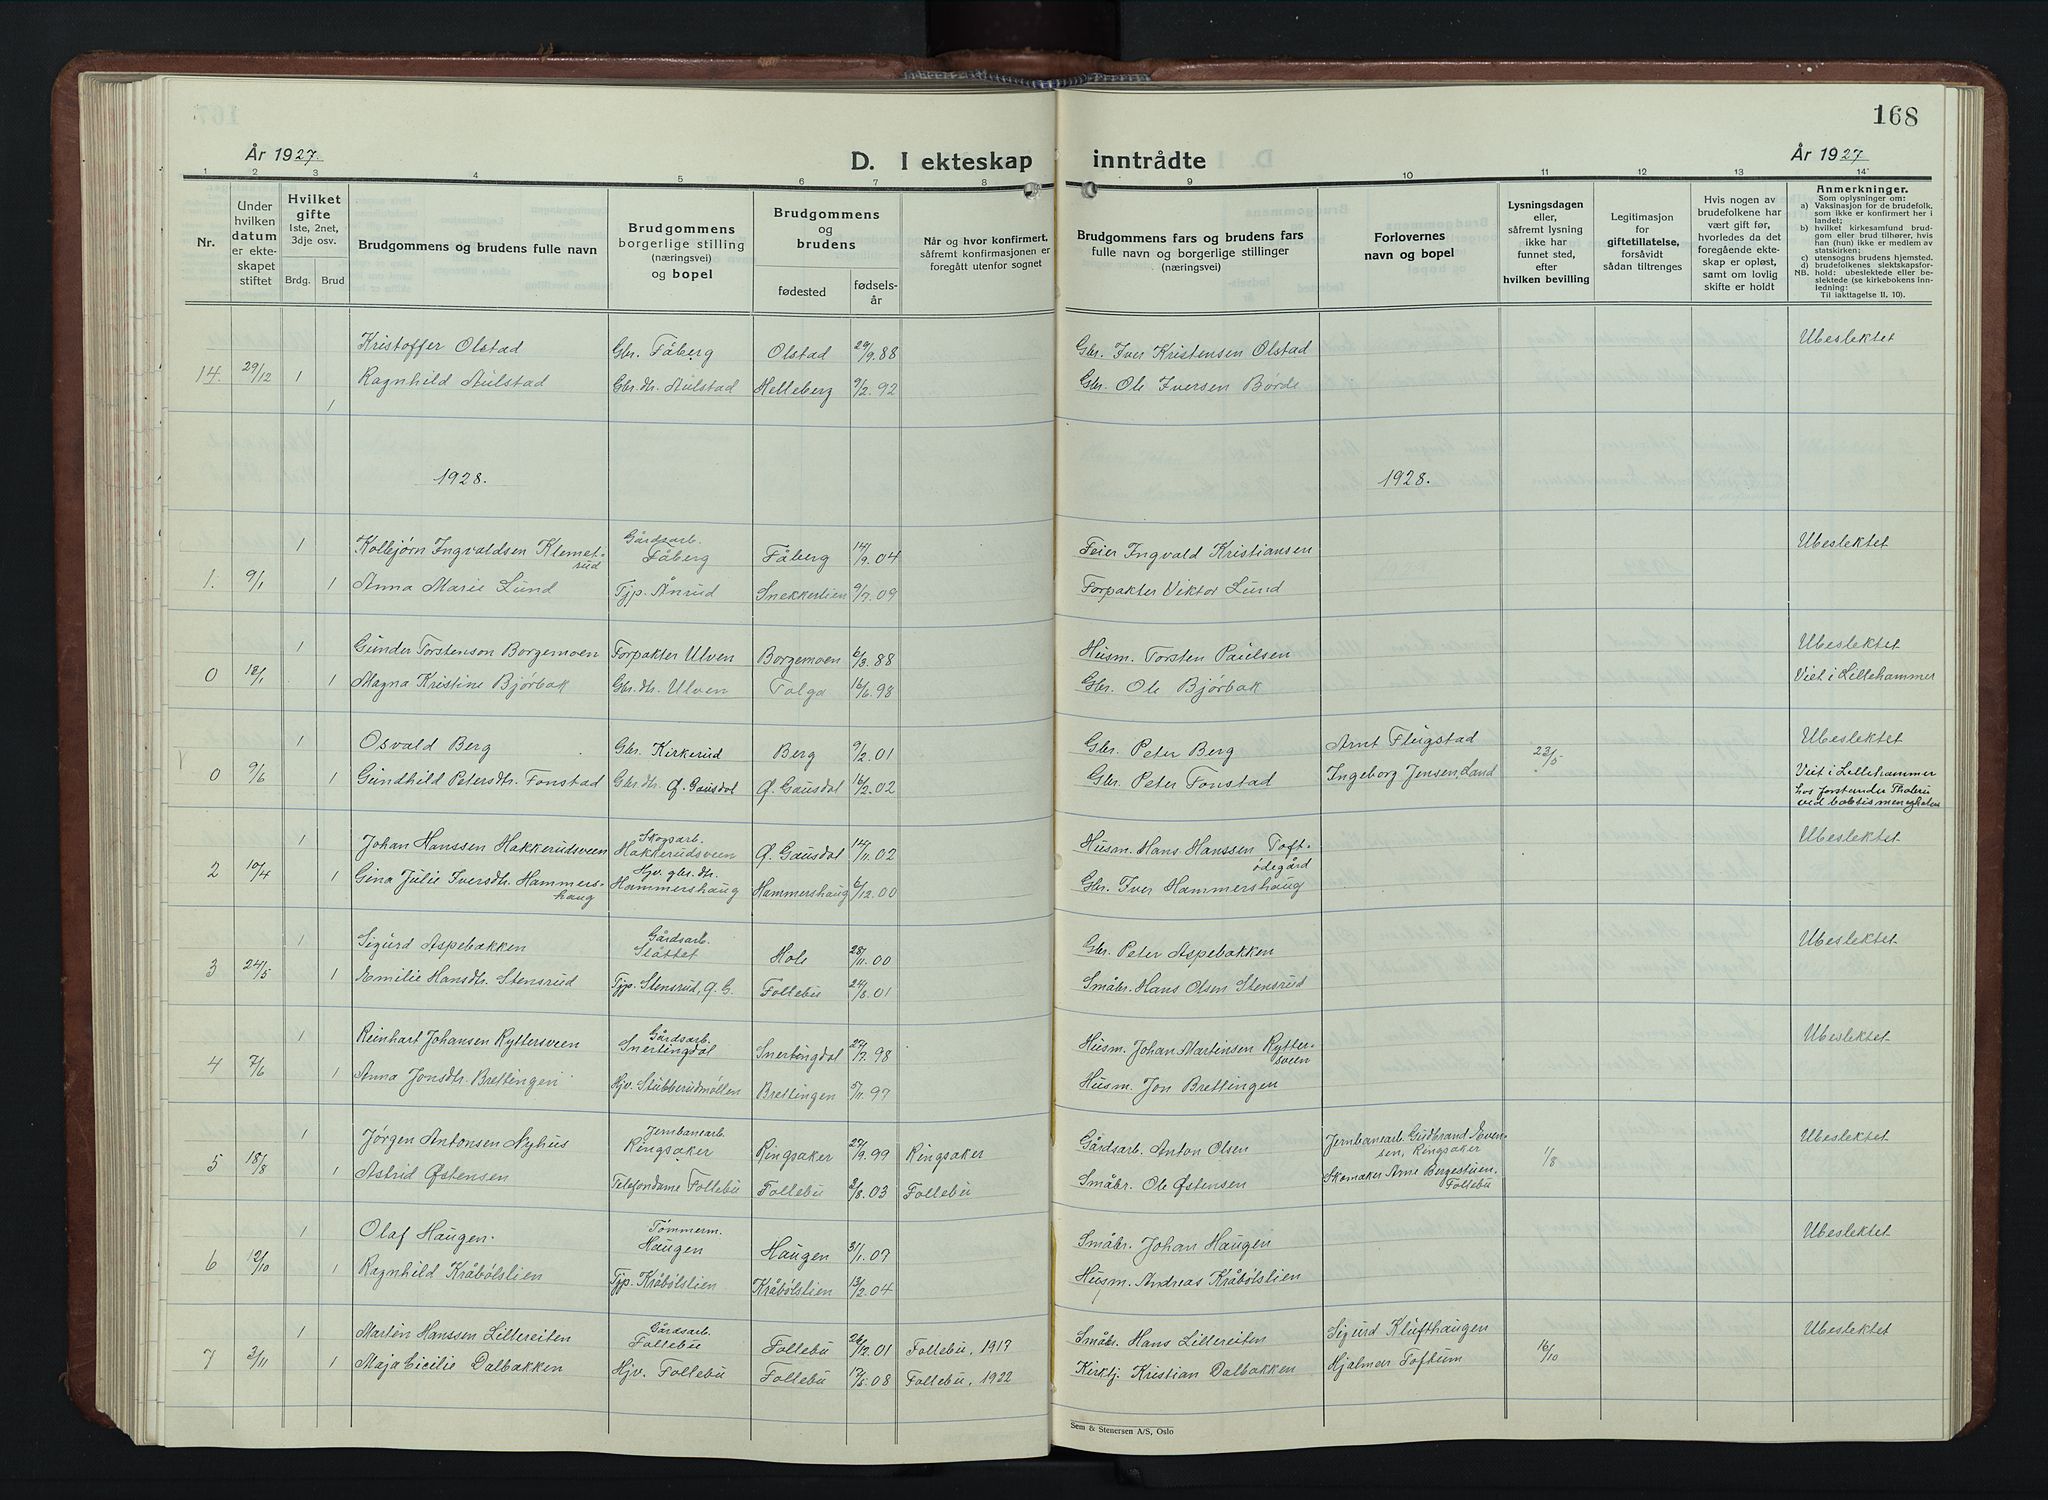 168
År 1927.
D. I ekteskap inntrådte
År 1927
1 2 3 4 5 6 7 8 9 10 11 12 13 14
Nr.
Under hvilken datum er ekteskapet stiftet
Hvilket gifte 1ste, 2net, 3dje osv.
Brdg. Brud
Brudgommens og brudens fulle navn
Brudgommens borgerlige stilling (næringsvei) og bopel
Brudgommens og brudens
fødested
fødselsår
Når og hvor konfirmert, såfremt konfirmasjonen er foregått utenfor sognet
Brudgommens fars og brudens fars fulle navn og borgerlige stillinger (næringsvei)
Forlovernes navn og bopel
Lysningsdagen eller, såfremt lysning ikke har funnet sted, efter hvilken bevilling
Legitimasjon for giftetillatelse, forsåvidt sådan tiltrenges
Hvis nogen av brudefolkene har vært gift før, hvorledes da det foregående ekteskap er opløst, samt om lovlig skifte er holdt
Anmerkninger.
Som oplysninger om:
a) Vaksinasjon for de brudefolk. som ikke er konfirmert her i landet;
b) hvilket kirkesamfund brudgom eller brud tilhører, hvis han (hun) ikke er medlem av statskirken;
c) utensogns brudens hjemsted.
d) brudefolkenes slektskapsforhold: ubeslektede eller beslektede (se kirkebokens innledning:
NB.
Til iakttagelse 11, 10).
Kristoffer Olstad Gbr. Fåberg Olstad 29/9.88 Gbr. Iver Kristensen Olstad Ubeslektet
14. 29/12 1 Ragnhild Aulstad Gbr.dtr. Aulstad Helleberg 9/2.92 Gbr. Ole Iversen Børde
1
1928. 1928.
1 Kolbjørn Ingvaldsen Klemetrud Gårdsarb. Fåberg Fåberg 14/9.04 Feier Ingvald Kristiansen Ubeslektet
1. 9/1 1 Anna Marie Lund Tjp. Ånrud Snekkerlien 9/7.09 Forpakter Viktor Lund
1 Gunder Torstenson Borgemoen Forpakter Ulven Borgemoen 6/3.88 Husm. Torsten Paulsen Ubeslektet
0 18/1 1 Magna Kristine Bjørbak Gbr.dtr. Ulven Tolga 16/6.98 Gbr. Ole Bjørbak Viet i Lillehammer
1 Osvald Berg Gbr. Kirkerud Berg 9/2.01 Gbr. Peter Berg Arnt Flugstad 23/5 Ubeslektet
0 9/6 1 Gundhild Petersdtr. Fonstad Gbr.dtr. Ø. Gausdal Ø. Gausdal 16/2.02 Gbr. Peter Fonstad Ingeborg Jensen, Land Viet i Lillehammer
hos forstander
1 Johan Hanssen Hakkerudsveen Skogsarb. Hakkerudsveen Ø. Gausdal 14/11.02 Husm. Hans Hanssen Toftødegård Ubeslektet
2 10/4 1 Gina Julie Iversdtr. Hammershaug Hjv. gbr.dtr. Hammershaug Hammershaug 6/12.00 Gbr. Iver Hammershaug
1 Sigurd Aspebakken Gårdsarb. Slåttet Hole 28/11.00 Gbr. Peter Aspebakken Ubeslektet
3 24/5 1 Emilie Hansdtr. Stensrud Tjp. Stensrud, Ø. G. Follebu 24/8.01 Småbr. Hans Olsen Stensrud
1 Reinhart Johansen Ryttersveen Gårdsarb. Snertingdal Snertingdal 29/2.98 Husm. Johan Martinsen Ryttersveen Ubeslektet
4 7/6 1 Anna Jonsdtr. Brettingen Hjv. Stubberudmøllen Brettingen 5/11.97 Husm. Jon Brettingen
1 Jørgen Antonsen Nyhus Jernbanearb. Ringsaker Ringsaker 27/9.99 Ringsaker Gårdsarb. Anton Olsen Jernbanearb. Gudbrand Evensen, Ringsaker 1/8 Ubeslektet
5 18/8 1 Astrid Østensen Telefondame Follebu Follebu 2/8.03 Follebu Småbr. Ole Østensen Skomaker Arne Bergestuen, Follebu
1 Olaf Haugen. Tømmerm. Haugen Haugen 31/1.07 Småbr. Johan Haugen Ubeslektet
6 12/10 1 Ragnhild Kråbølslien Tjp. Kråbølslien Kråbølslien 13/2.04 Husm. Andreas Kråbølslien
1 Martin Hanssen Lillereiten Gårdsarb. Follebu Follebu 26/12.01 Follebu, 1917 Småbr. Hans Lillereiten Sigurd Klufthaugen 16/10 Ubeslektet
7 3/11 1 Maja Cicilie Dalbakken Hjv. Follebu Follebu 17/5.08 Follebu, 1922 Kirktj. Kristian Dalbakken Hjalmar Toftum
Sem & Stenersen A/S, Oslo